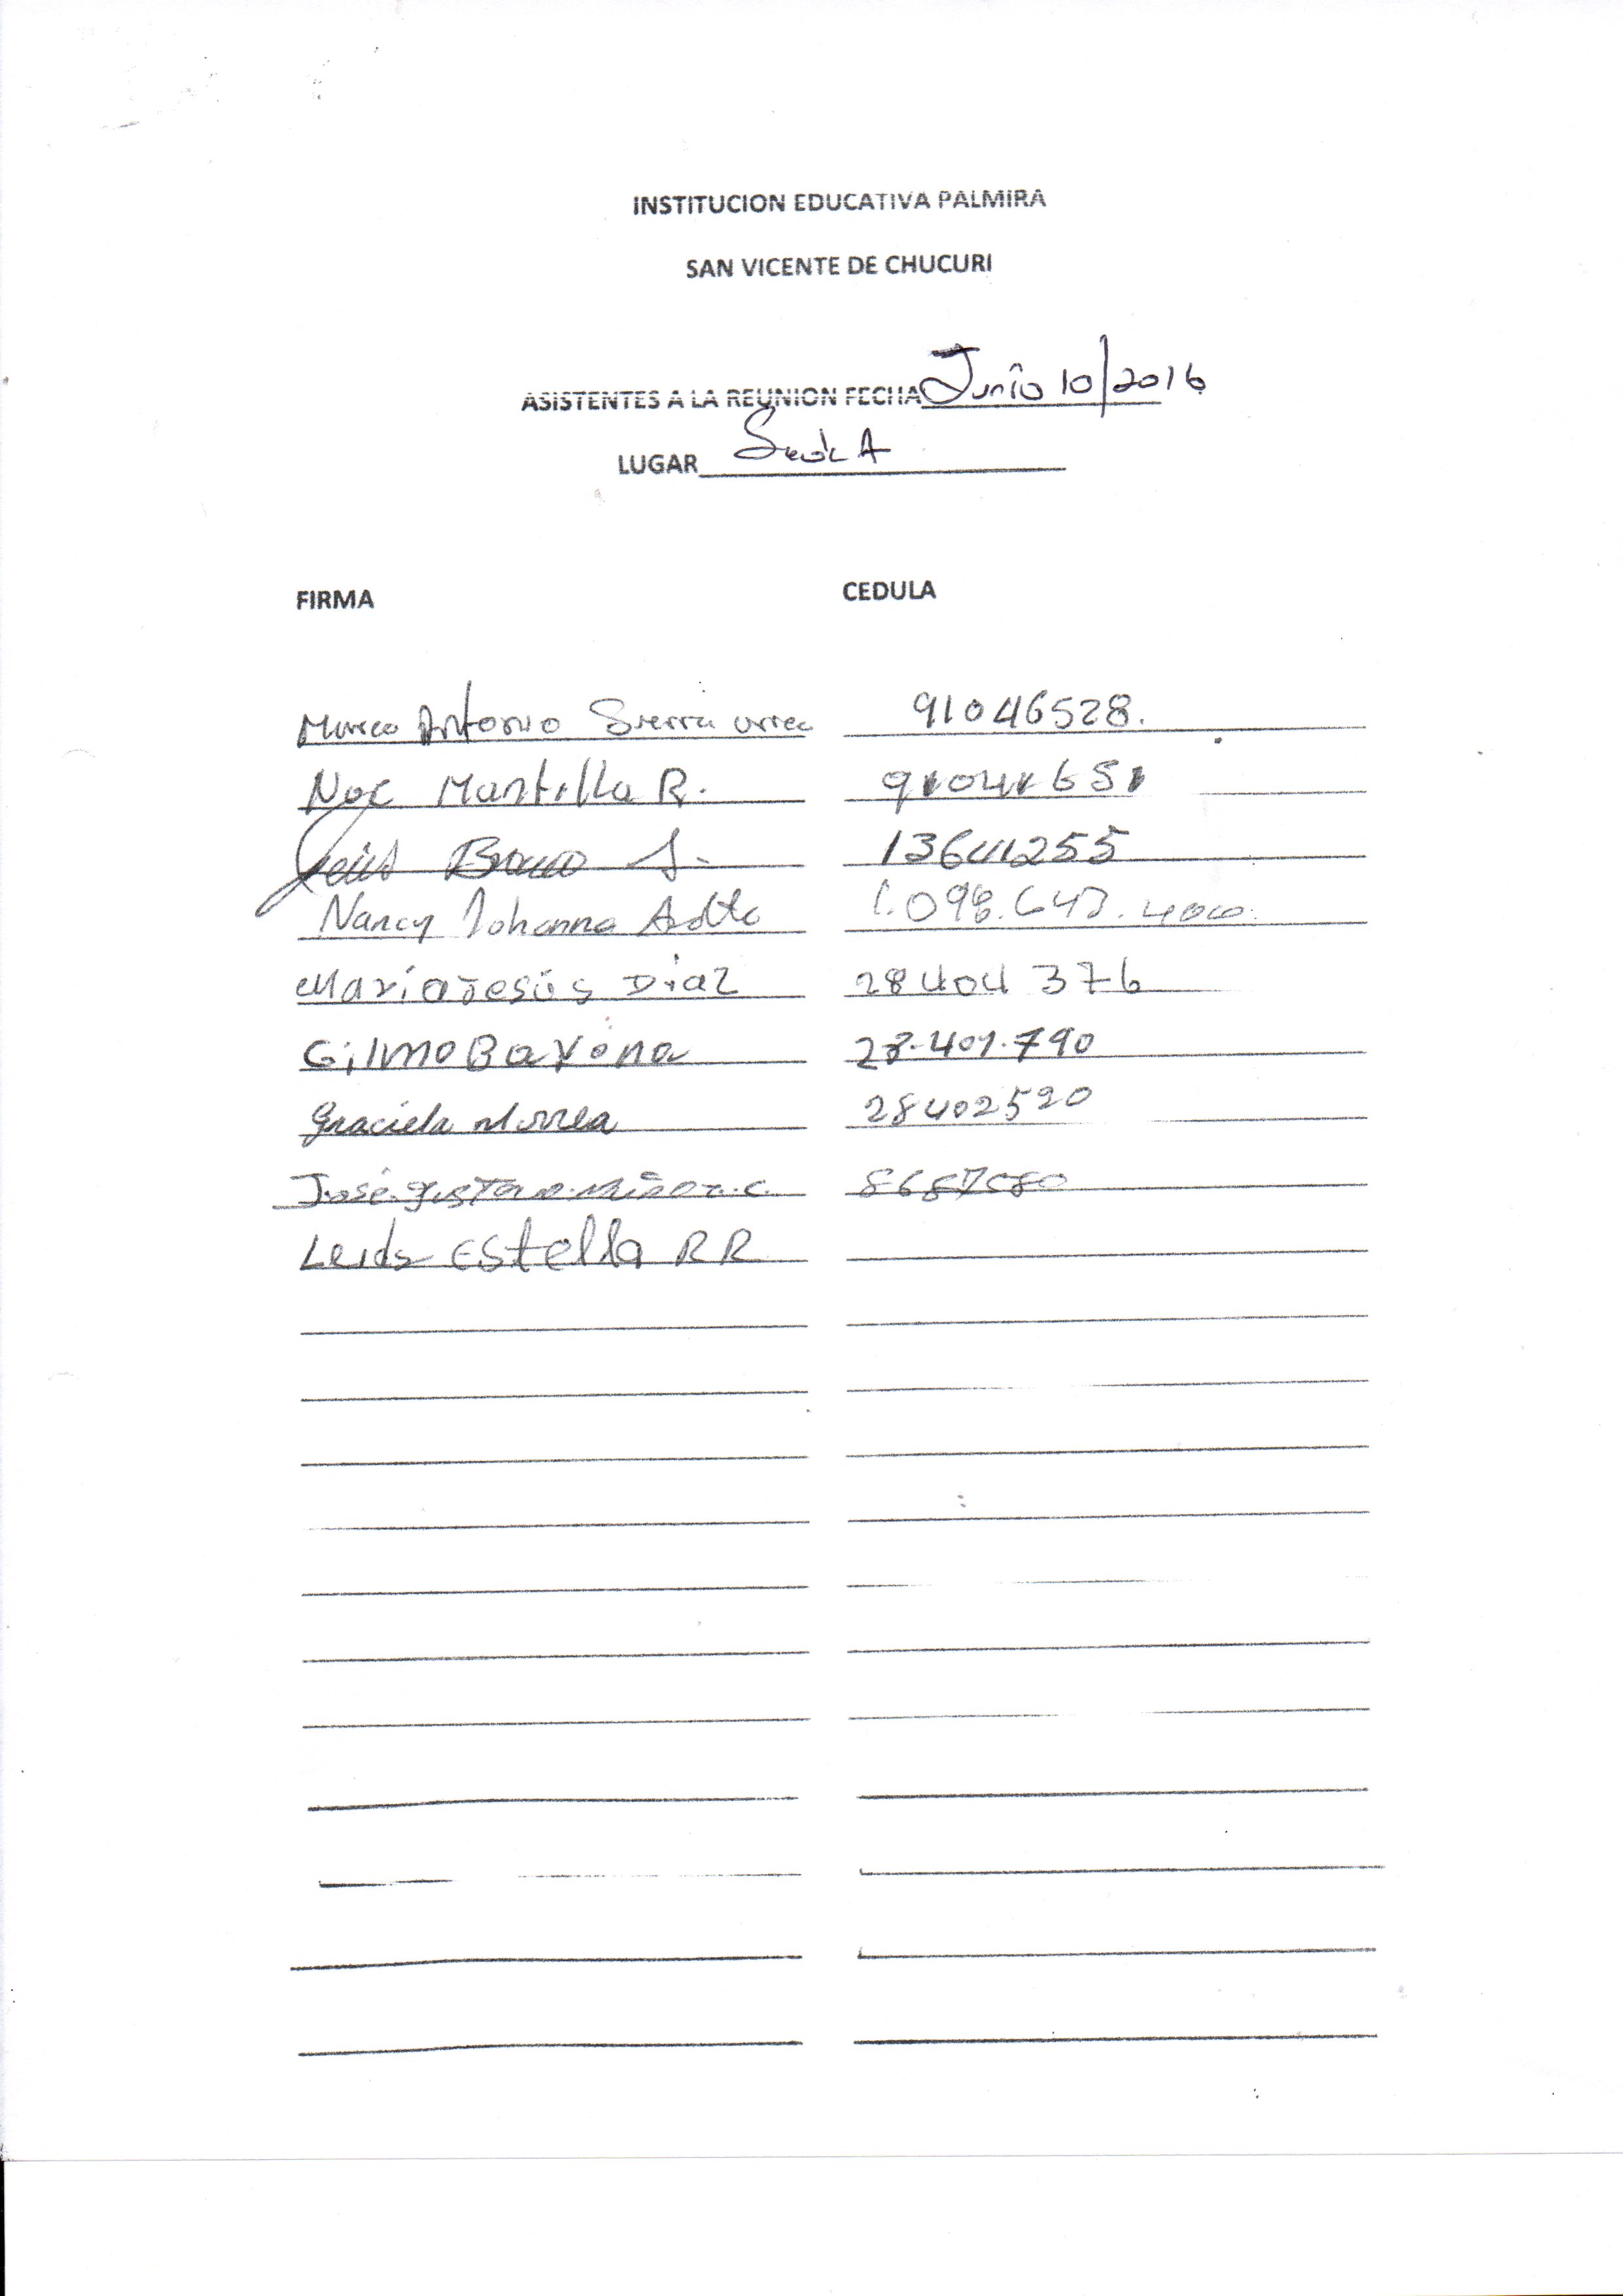 INSTITUCION EDUCATIVA PALMIRA
SAN VICENTE DE CHUCURI
ASISTENTES A LA REUNION FECHA Junio 10/2016
LUGAR Sede A
FIRMA CEDULA
Marco Antonio Sierra urrea 91046528.
Noe Mantilla R. 91041651
13641255
Nancy Johanna 1.098.643.400
Maria Jesús Diaz 28404376
Gilmo Bayona 28.401.790
Graciela 28402520
José Gustavo C.
Leida Estella RR